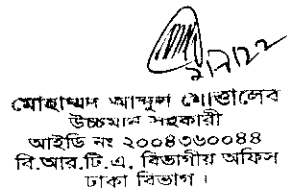 ২/৭/২২
মোহাম্মদ আব্দুল মোত্তালেব
উচ্চমান সহকারী
আইডি নং ২০০৪৩৬০০৪৪
বি.আর.টি.এ. বিভাগীয় অফিস
ঢাকা বিভাগ।